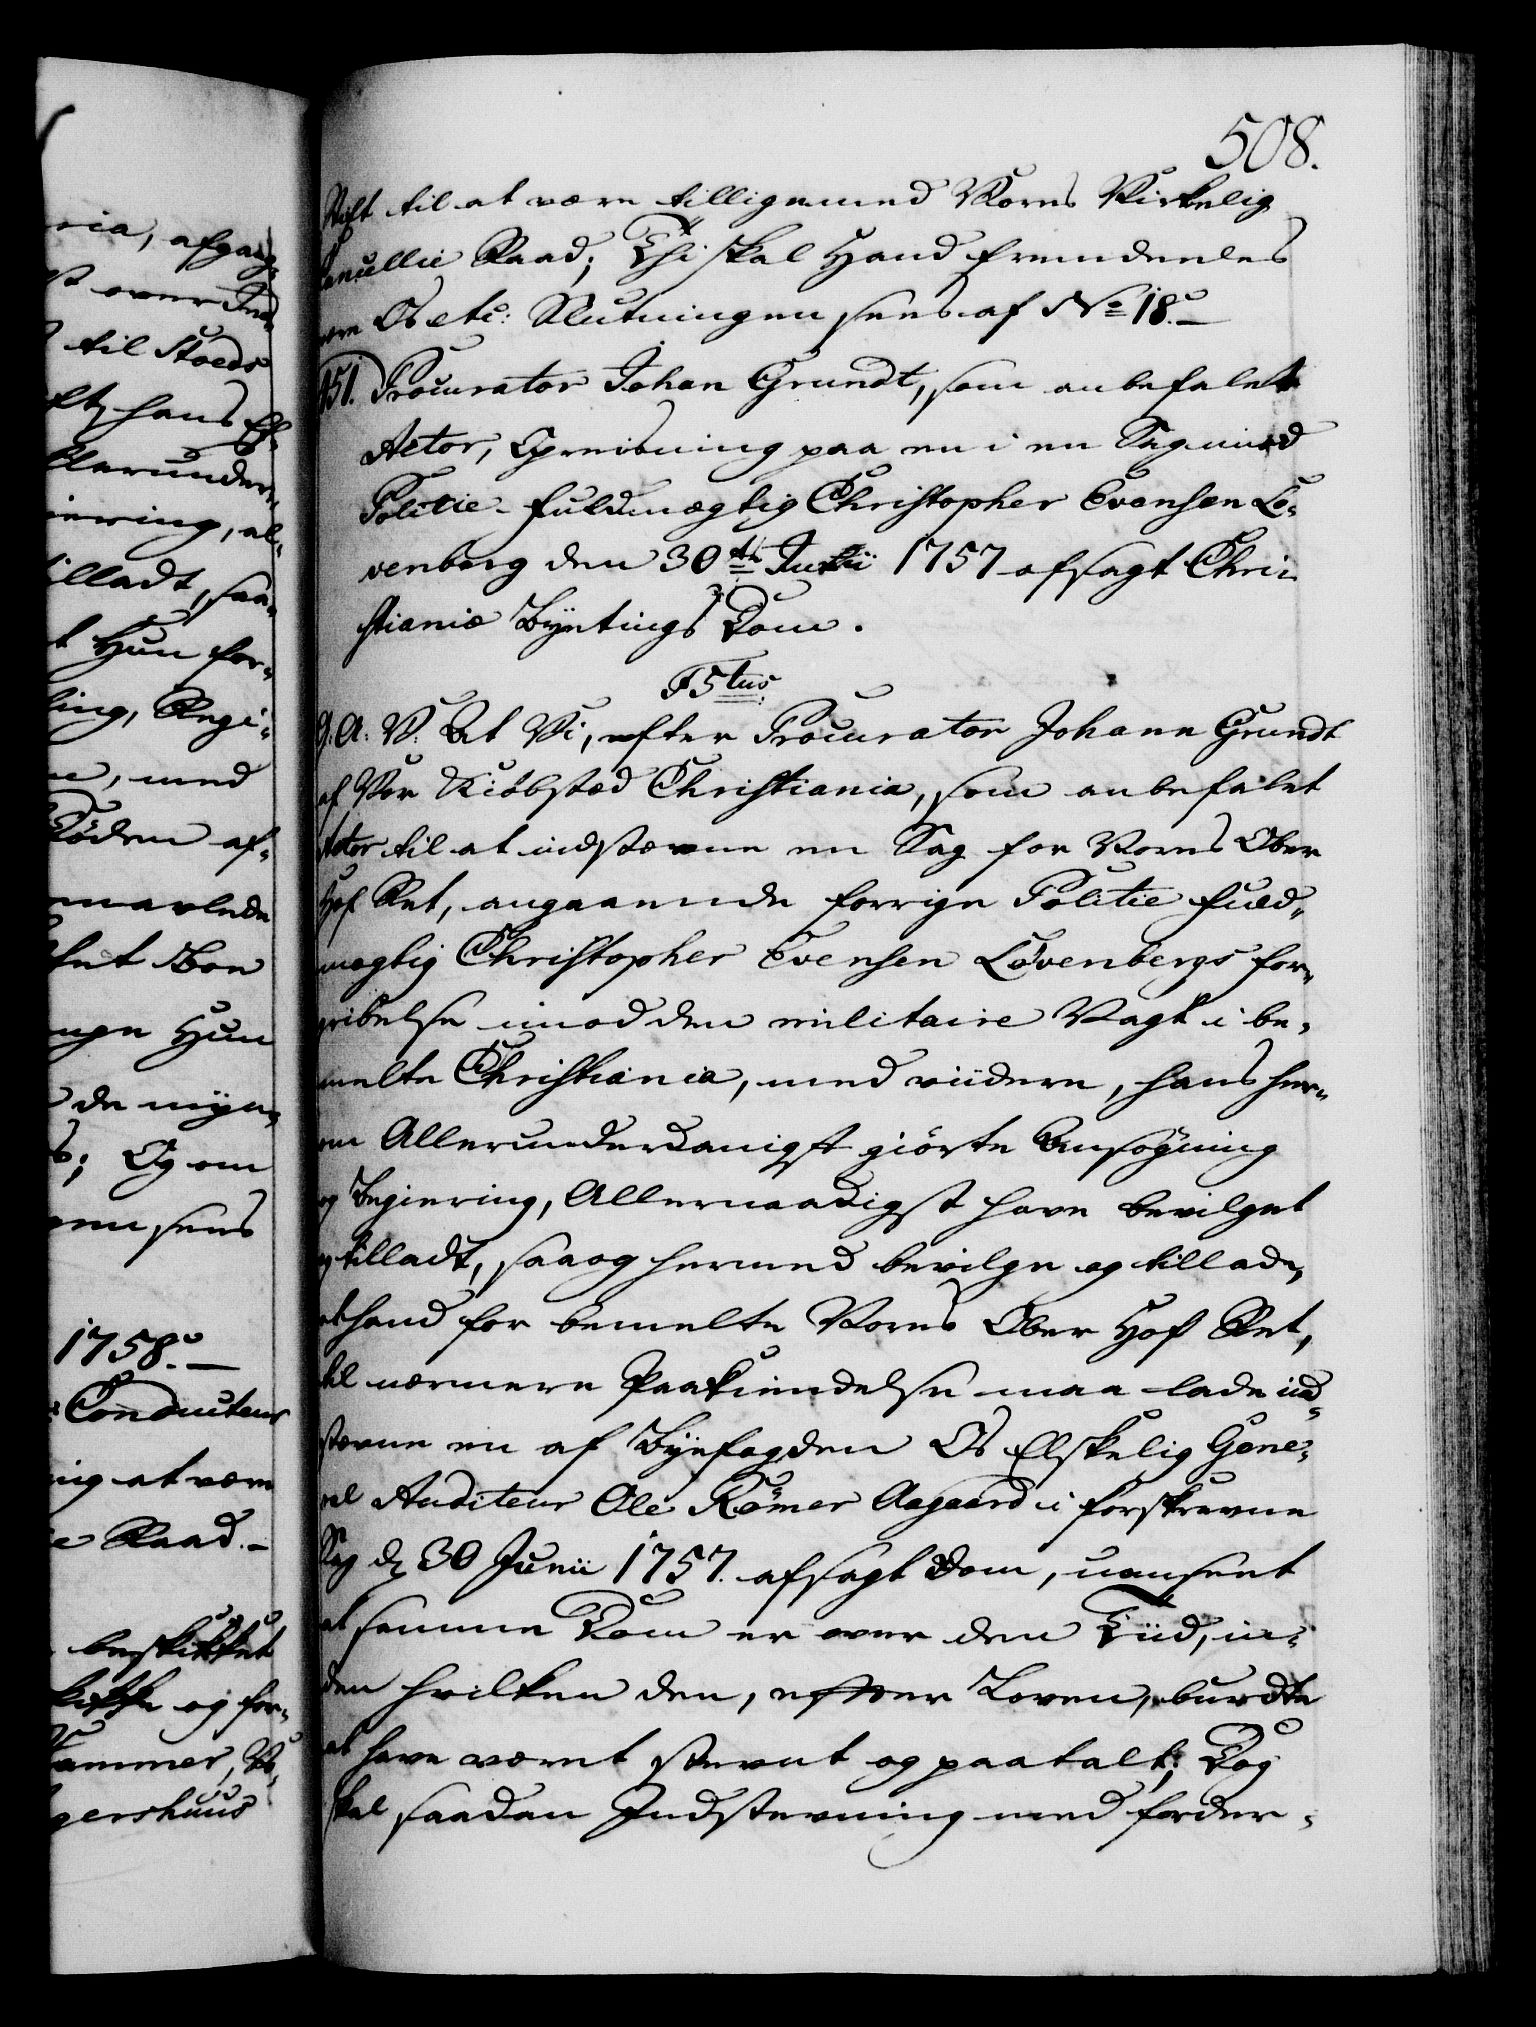 508.
Stift til at være tilligemed Vores Virkelig
Cancellie Raad; Thi skal Hand fremdeeles
være Os etc: Slutningen sees af No 18.
451. Procurator Johan Grundt, som anbefalet
Actor, Opreisning paa en i en Sag imod
Politie-fuldmægtig Christopher Evensen Lö-
venberg den 30te Junii 1757 afsagt Chri-
stianiæ Byetings Dom.
F5tus
G. A. V. At Vi, efter Procurator Johann Grundt
af Vor Kiöbstæd Christiania, som anbefalet
Actor til at indstævne en Sag for Vores Ober
Hof Ret, angaaende forrige Politie fuld-
mægtig Christopher Evensen Lövenbergs for-
gribelse imod den militaire Vagt i be-
melte Christiania, med viidere, hans her-
om Allerunderdanigst giörte Ansögning
og Begiering, Allernaadigst have bevilget
og tilladt, saa og hermed bevilge og tillade,
at hand for bemelte Vores Ober Hof Ret,
til nærmere Paakiendelse maa lade ind-
stævne en af Byefogden Os Elskelig Gene-
ral Auditeur Ole Römer Aagaard i forskrevne
Sag d. 30 Junii 1757. afsagt Dom, uanseet
at samme Dom er over den Tiid, in-
den hvilken den, efter Loven, burdte
at have været stevnt og paatalt; Dog
skal saadan Indstevning med forder-
ria, afgang-
over Ind-
til Stæds
hans Ef-
llerunder-
iering, al-
illadt, saa-
t Hun for-
ling, Regi-
med
Döden af-
Boe
Hun
de myn-
s; Og om
sees
1758.
Conducteur
ig at være
e Raad.
beskikket
og for-
Kammer, Vo-
gershuus